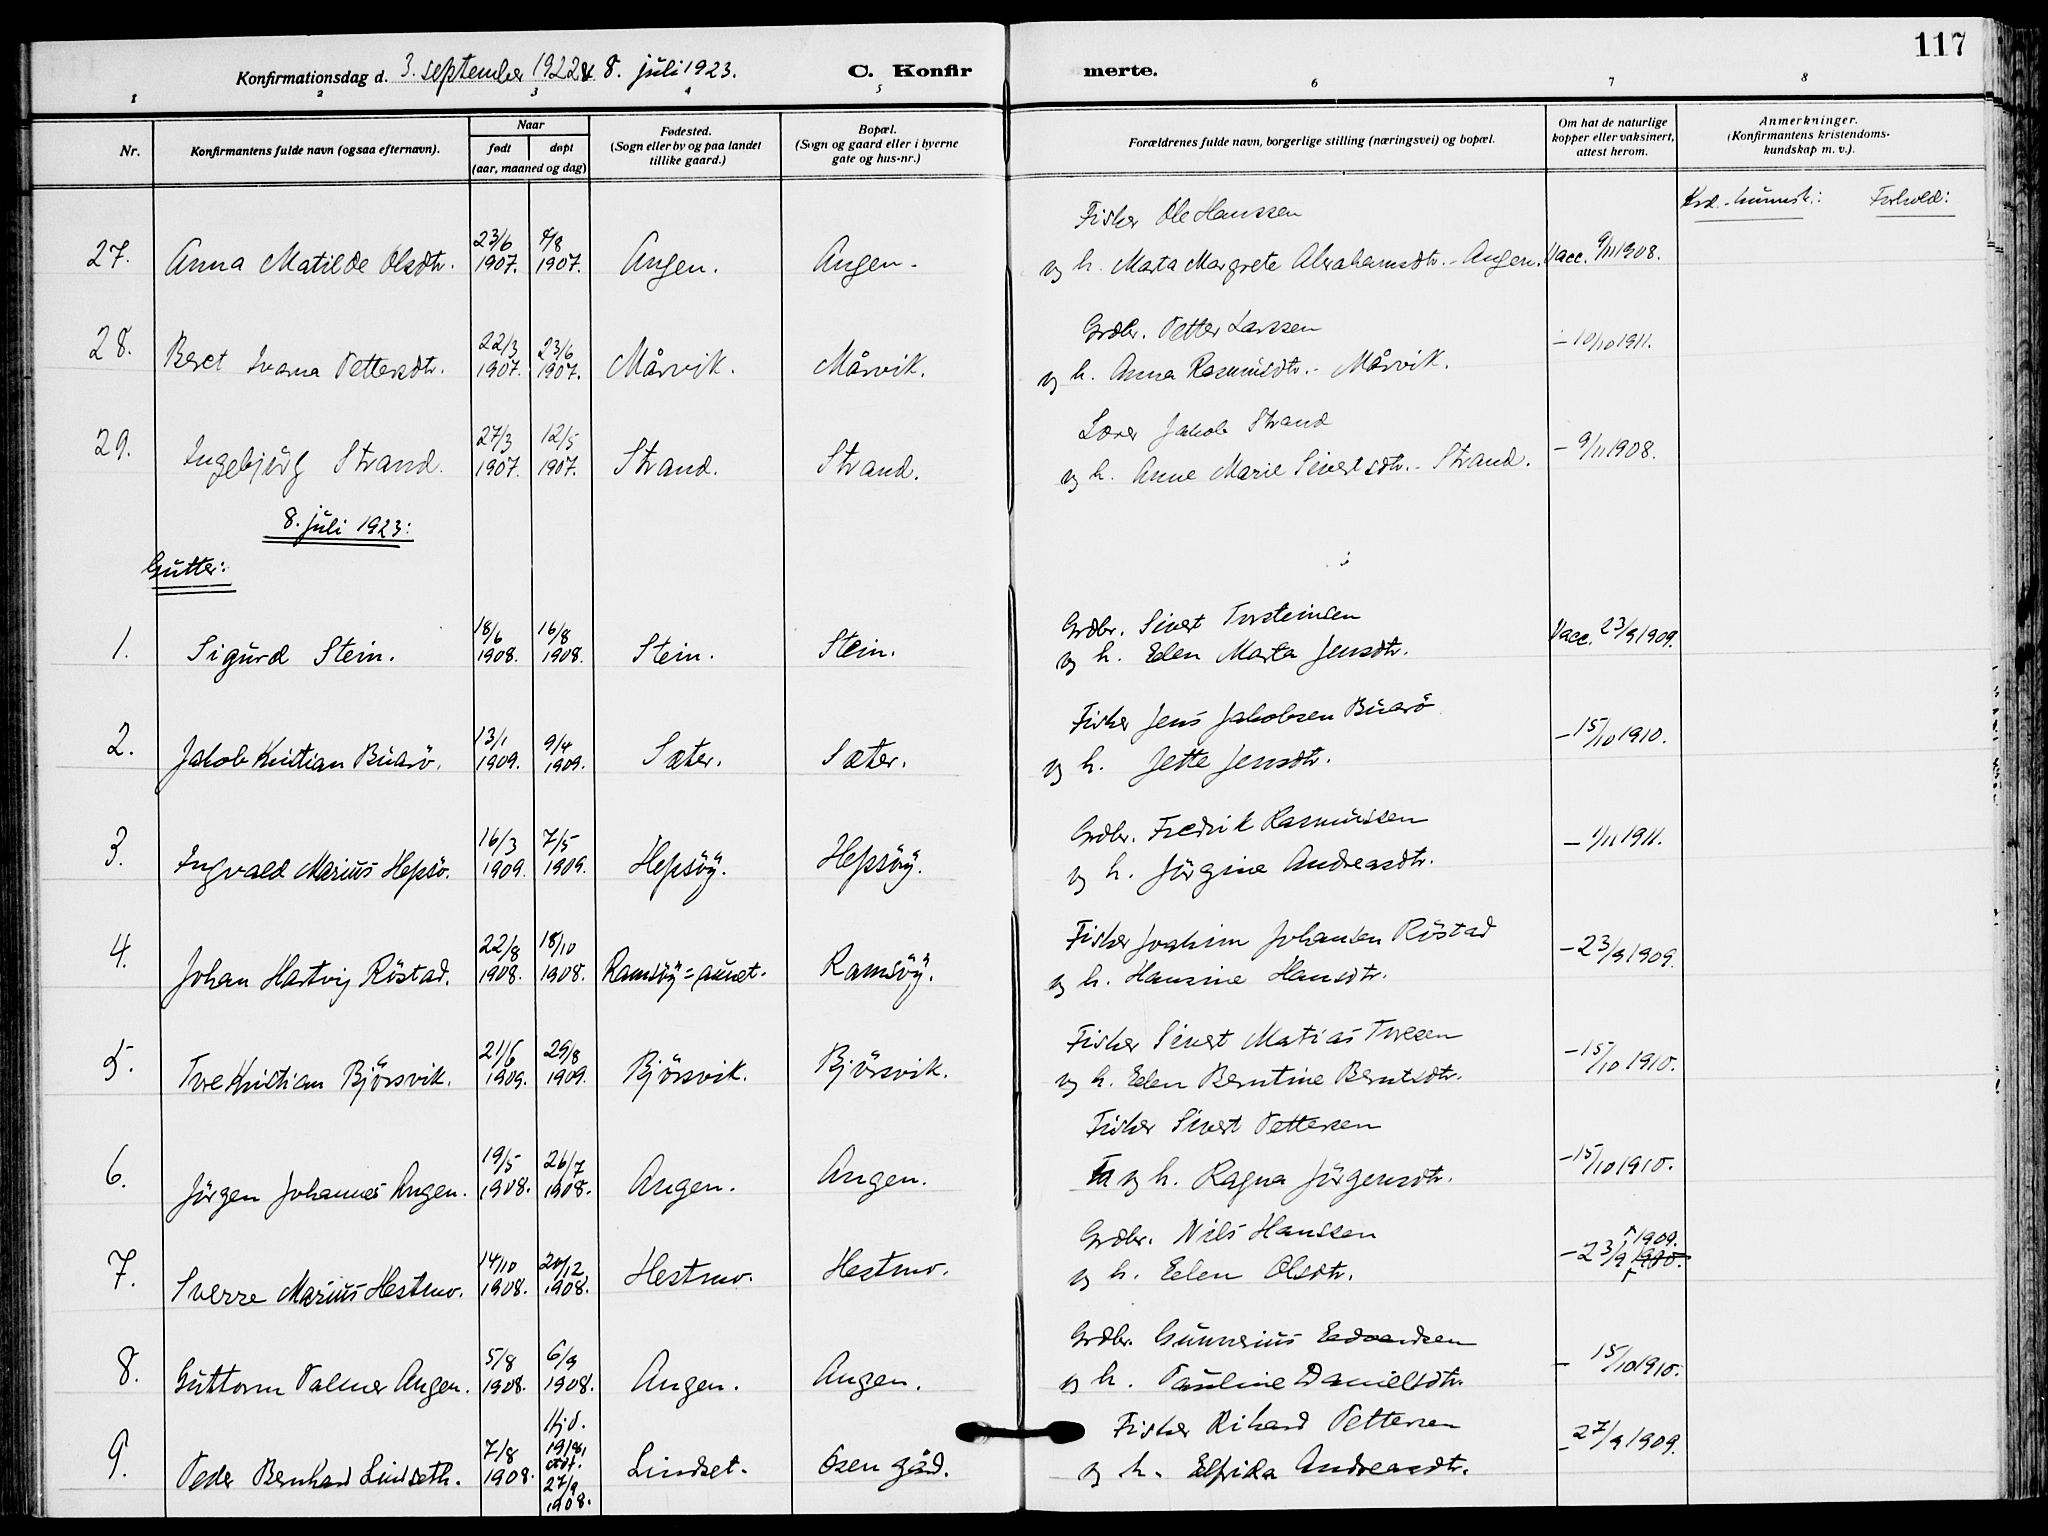 117
Konfirmationsdag d. 3. september 1922 & 8. juli 1923. C. Konfirmerte.
1 2 3 4 5 6 7 8
Nr. Konfirmantens fulde navn (ogsaa efternavn). Naar født døpt (aar, maaned og dag) Fødested. (Sogn eller by og paa landet tillike gaard.) Bopæl. (Sogn og gaard eller i byerne gate og hus-nr.) Forældrenes fulde navn, borgerlige stilling (næringsvei) og bopæl. Om hat de naturlige kopper eller vaksinert, attest herom. Anmerkninger. (Konfirmantens kristendomskundskap m. v.).
Forhold:
Fisker Ole Hanssen
27. Anna Matilde Olsdtr. 23/6 1907. 4/8 1907. Angen. Angen. og h. Marta Margrete Abrahamsdtr. - Angen. Vacc. 9/11 1908.
Grdbr. Petter Larssen
28. Beret Ivarna Pettersdtr. 22/3 1907. 23/6 1907. Mårvik. Mårvik. og h. Anna Rasmusdtr. - Mårvik. - 10/10 1911.
Lærer Jakob Strand
29. Ingebjörg Strand. 27/3 1907. 12/5 1907. Strand. Strand. og h. Anne Marie Sivertsdtr. - Strand. - 9/11 1908.
8. juli 1923:
Gutter:
Grdbr. Sivert Torsteinsen
1. Sigurd Stein. 18/6 1908. 16/8 1908. Stein. Stein. og h. Elen Marta Jensdtr. Vacc. 23/9 1909.
Fisker Jens Jakobsen Buarö
2. Jakob Kristian Buarö. 13/1 1909. 9/4 1909. Sæter. Sæter. og h. Jette Jensdtr. - 15/10 1910.
Grdbr. Fredrik Rasmussen
3. Ingvald Marius Hepsö. 16/3 1909. 7/5 1909. Hepsöy. Hepsöy. og h. Jörgine Andreasdtr. - 1/11 1911.
Fisker Joakim Johansen Röstad
4. Johan Hartvig Röstad. 22/8 1908. 18/10 1908. Ramsöy=aunet. Ramsöy. og h. Hansine Hansdtr. - 23/9 1909.
Fisker Sivert Matias Toresen
5. Tore Kristian Björsvik. 21/6 1909. 29/8 1909. Björsvik. Björsvik. og h. Elen Berntine Berntsdtr. - 15/10 1910.
Fisker Sivert Pettersen
6. Jörgen Johannes Angen. 19/5 1908. 26/7 1908. Angen. Angen. og h. Ragna Jörgensdtr. - 15/10 1910.
Grdbr. Nils Hanssen
7. Sverre Marius Hestmo. 14/10 1908. 20/12 1908. Hestmo. Hestmo. og h. Elen Olsdtr. - 23/9 1910. 1909.
Grdbr. Gunnerius Edvardsen
8. Guttorm Palmer Angen. 5/8 1908. 6/9 1908. Angen. Angen. og h. Pauline Danielsdtr. - 15/10 1910.
Fisker Rikard Pettersen
9. Peder Bernhard Lindseth. 7/8 1908. Hj.d. 19/8, stdf. 27/9 1908. Lindset. Osen gård. og h. Elfrida Andreasdtr. - 27/9 1909.